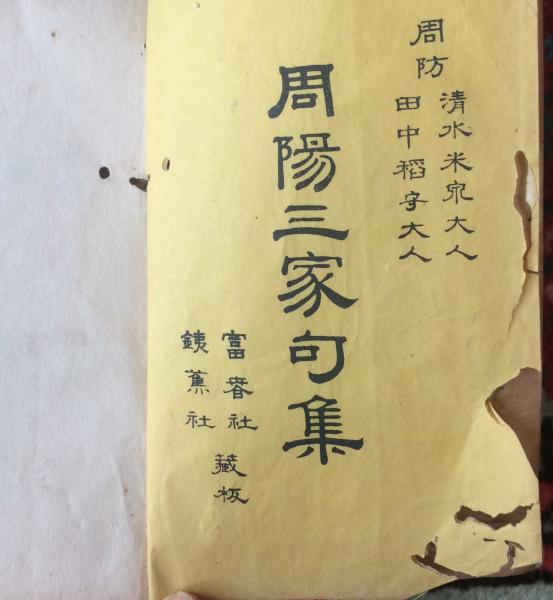 周防
清水米泉大人
田中稻守大人
周陽三家句集
富春社
銕蕉社
藏板